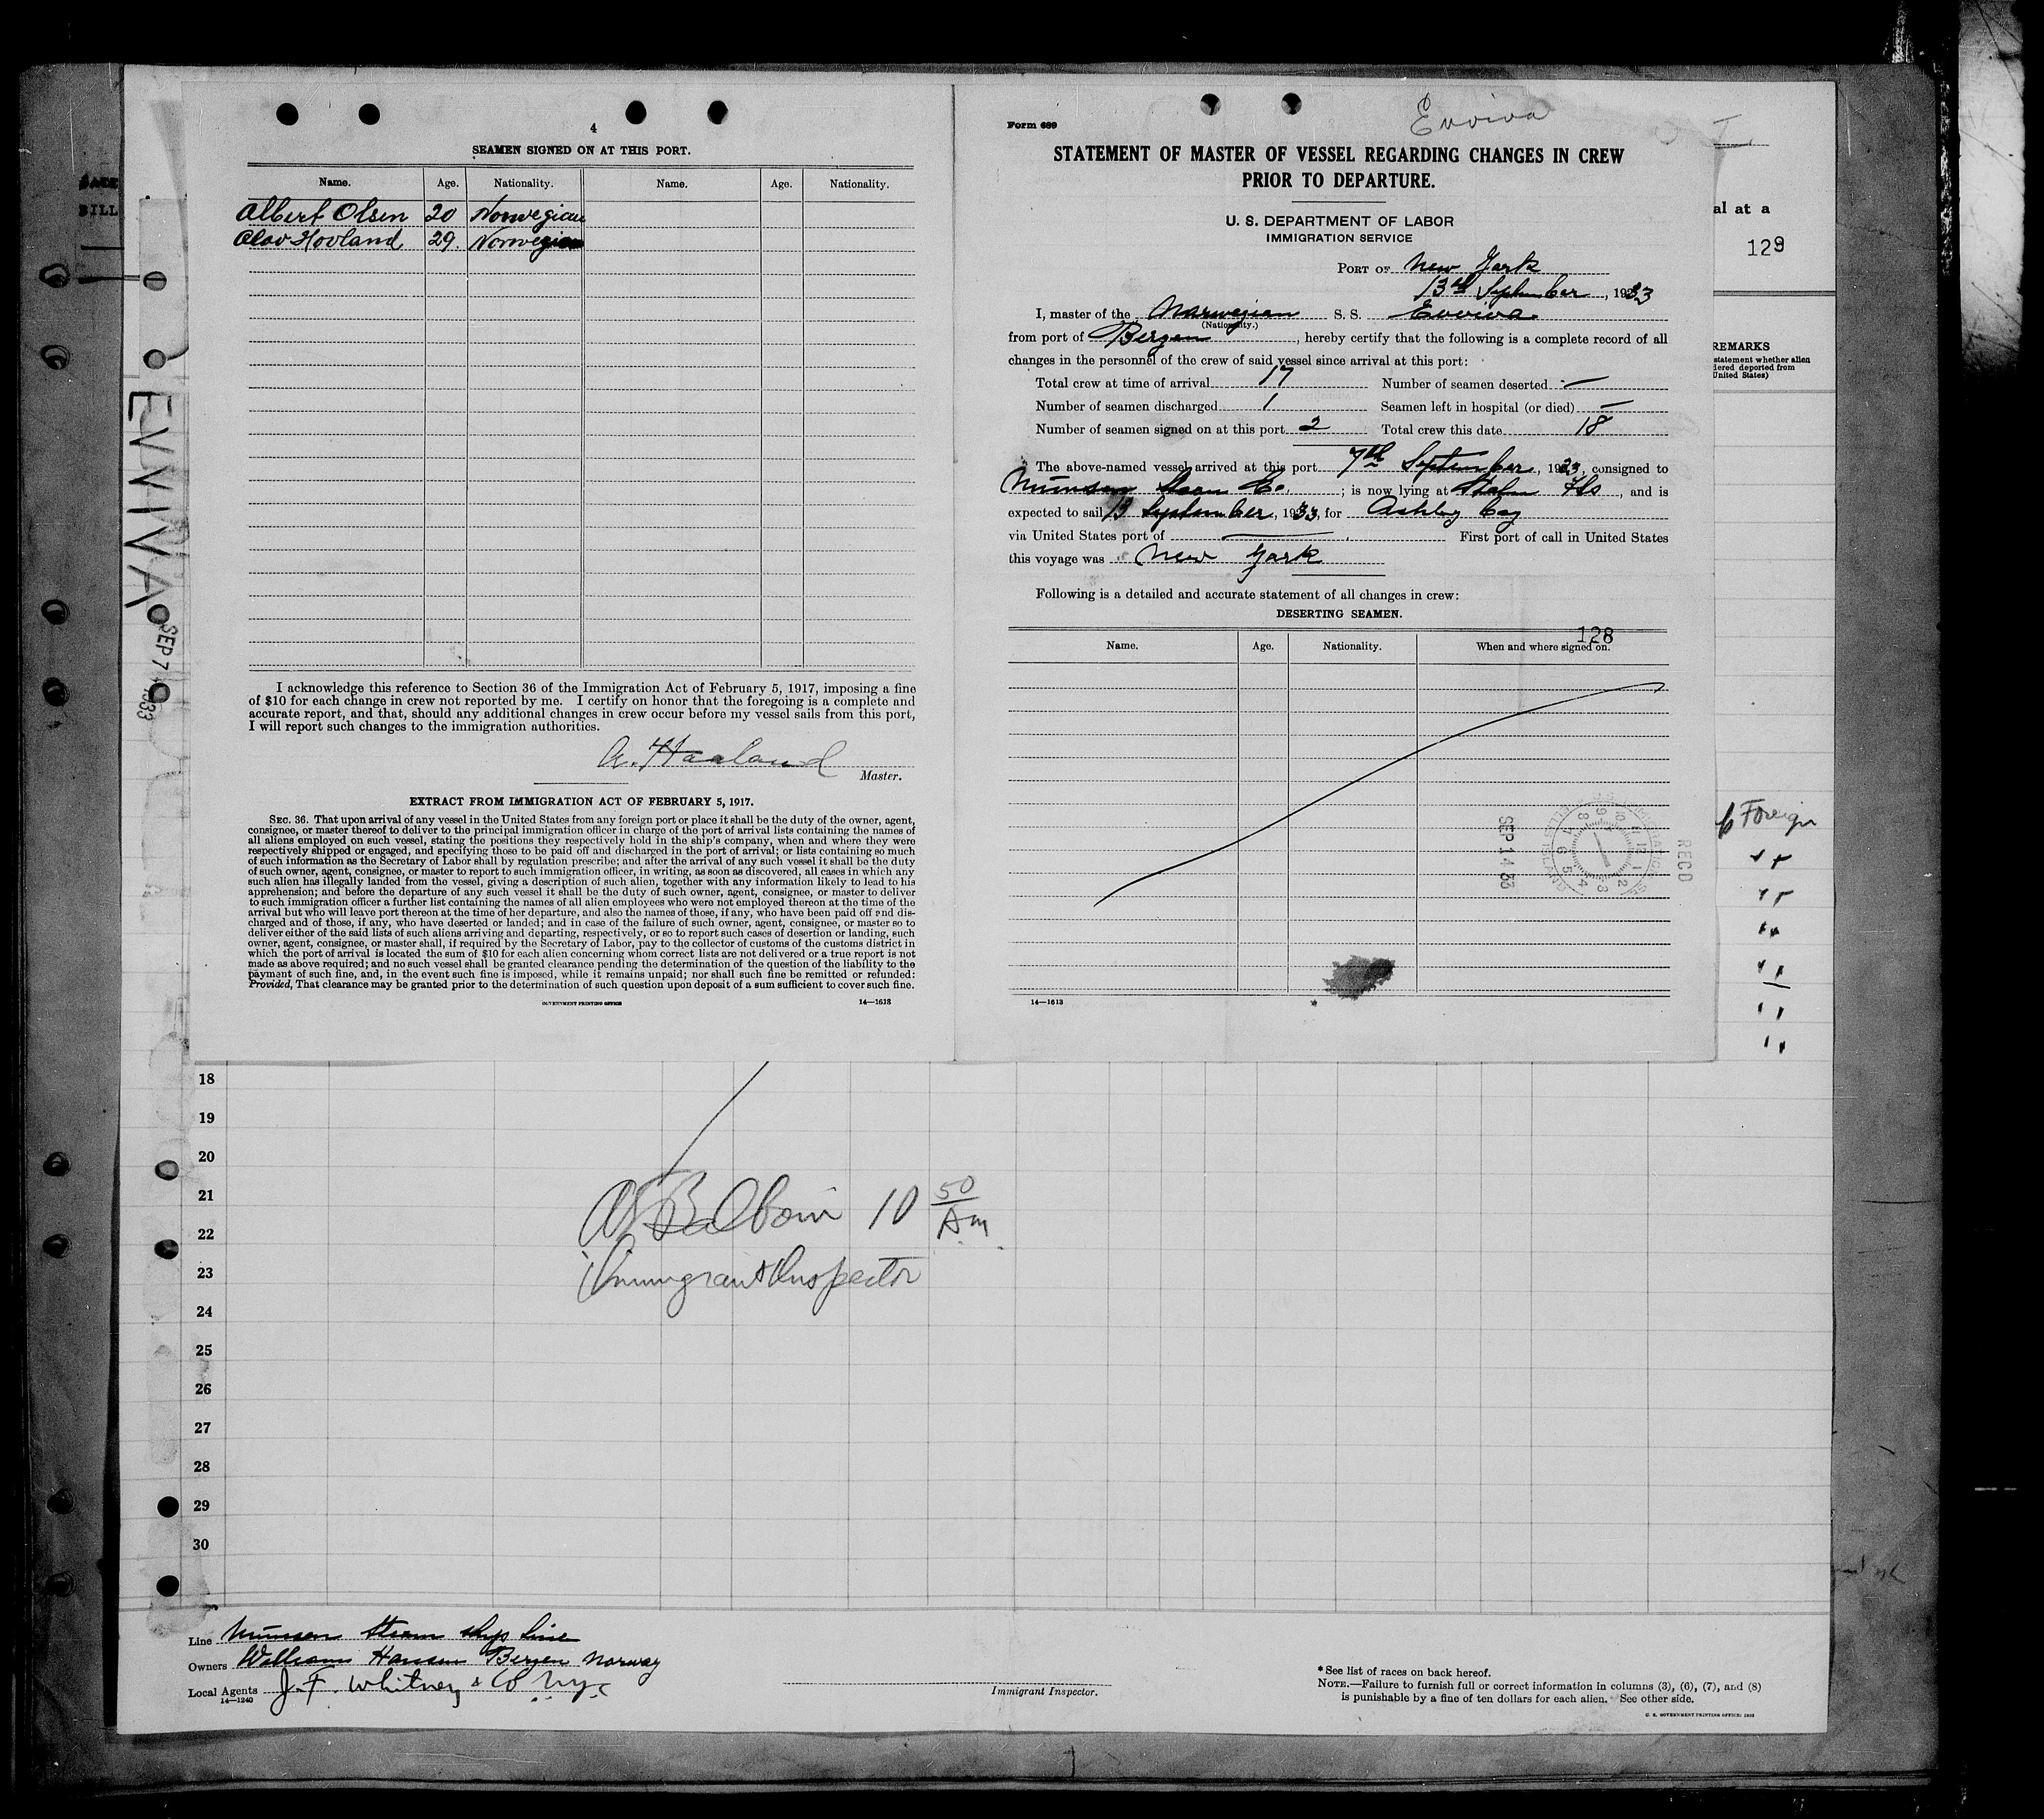 4
SEAMEN SIGNED ON AT THIS PORT.
Name. Age. Nationality. Name. Age. Nationality.
Albert Olsen 20 Norwegian
Olav Hovland 29. Norwegian
I acknowledge this reference to Section 36 of the Immigration Act of February 5, 1917, imposing a fine
of $10 for each change in crew not reported by me. I certify on honor that the foregoing is a complete and
accurate report, and that, should any additional changes in crew occur before my vessel sails from this port,
I will report such changes to the immigration authorities.
A. Haaland
Master.
EXTRACT FROM IMMIGRATION ACT OF FEBRUARY 5, 1917.
SEC. 36. That upon arrival of any vessel in the United States from any foreign port or place it shall be the duty of the owner, agent,
consignee, or master thereof to deliver to the principal immigration officer in charge of the port of arrival lists containing the names of
all aliens employed on such vessel, stating the positions they respectively hold in the ship's company, when and where they were
respectively shipped or engaged, and specifying those to be paid off and discharged in the port of arrival; or lists containing so much
of such information as the Secretary of Labor shall by regulation prescribe; and after the arrival of any such vessel it shall be the duty
of such owner, agent, consignee, or master to report to such immigration officer, in writing, as soon as discovered, all cases in which any
such alien has illegally landed from the vessel, giving a description of such alien, together with any information likely to lead to his
apprehension; and before the departure of any such vessel it shall be the duty of such owner, agent, consignee, or master to deliver
to such immigration officer a further list containing the names of all alien employees who were not employed thereon at the time of the
arrival but who will leave port thereon at the time of her departure, and also the names of those, if any, who have been paid off and dis-
charged and of those, if any, who have deserted or landed; and in case of the failure of such owner, agent, consignee, or master so to
deliver either of the said lists of such aliens arriving and departing, respectively, or so to report such cases of desertion or landing, such
owner, agent, consignee, or master shall, if required by the Secretary of Labor, pay to the collector of customs of the customs district in
which the port of arrival is located the sum of $10 for each alien concerning whom correct lists are not delivered or a true report is not
made as above required; and no such vessel shall be granted clearance pending the determination of the question of the liability to the
payment of such fine, and, in the event such fine is imposed, while it remains unpaid; nor shall such fine be remitted or refunded:
Provided, That clearance may be granted prior to the determination of such question upon deposit of a sum sufficient to cover such fine.
GOVERNMENT PRINTING OFFICE 14—1613
EVVIVA
SEP 7 1933
Form 689
Evviva
STATEMENT OF MASTER OF VESSEL REGARDING CHANGES IN CREW
PRIOR TO DEPARTURE.
U. S. DEPARTMENT OF LABOR
IMMIGRATION SERVICE
PORT OF New York
13th September, 1933
I, master of the Norwegian S. S. Evviva
(Nationality.)
from port of Bergen, hereby certify that the following is a complete record of all
changes in the personnel of the crew of said vessel since arrival at this port:
Total crew at time of arrival 17 Number of seamen deserted —
Number of seamen discharged 1 Seamen left in hospital (or died) —
Number of seamen signed on at this port 2 Total crew this date 18
The above-named vessel arrived at this port 7th September, 1933, consigned to
Munson Steam Co.; is now lying at , and is
expected to sail 13 September, 1933, for
via United States port of — First port of call in United States
this voyage was New York
Following is a detailed and accurate statement of all changes in crew:
DESERTING SEAMEN.
128
Name. Age. Nationality. When and where signed on.
SEP 14 33
RECD
14—1613
al at a
129
REMARKS
statement whether alien
dered deported from
United States)
Foreign
18
19
20
21
22
23
24
25
26
27
28
29
30
10 50 Am
Immigrant Inspector
Line Munson Steam Ship Line
Owners William Hansen Bergen Norway
Local Agents J. F. Whitney & Co N.Y.C
14—1240
Immigrant Inspector.
* See list of races on back hereof.
NOTE.—Failure to furnish full or correct information in columns (3), (6), (7), and (8)
is punishable by a fine of ten dollars for each alien. See other side.